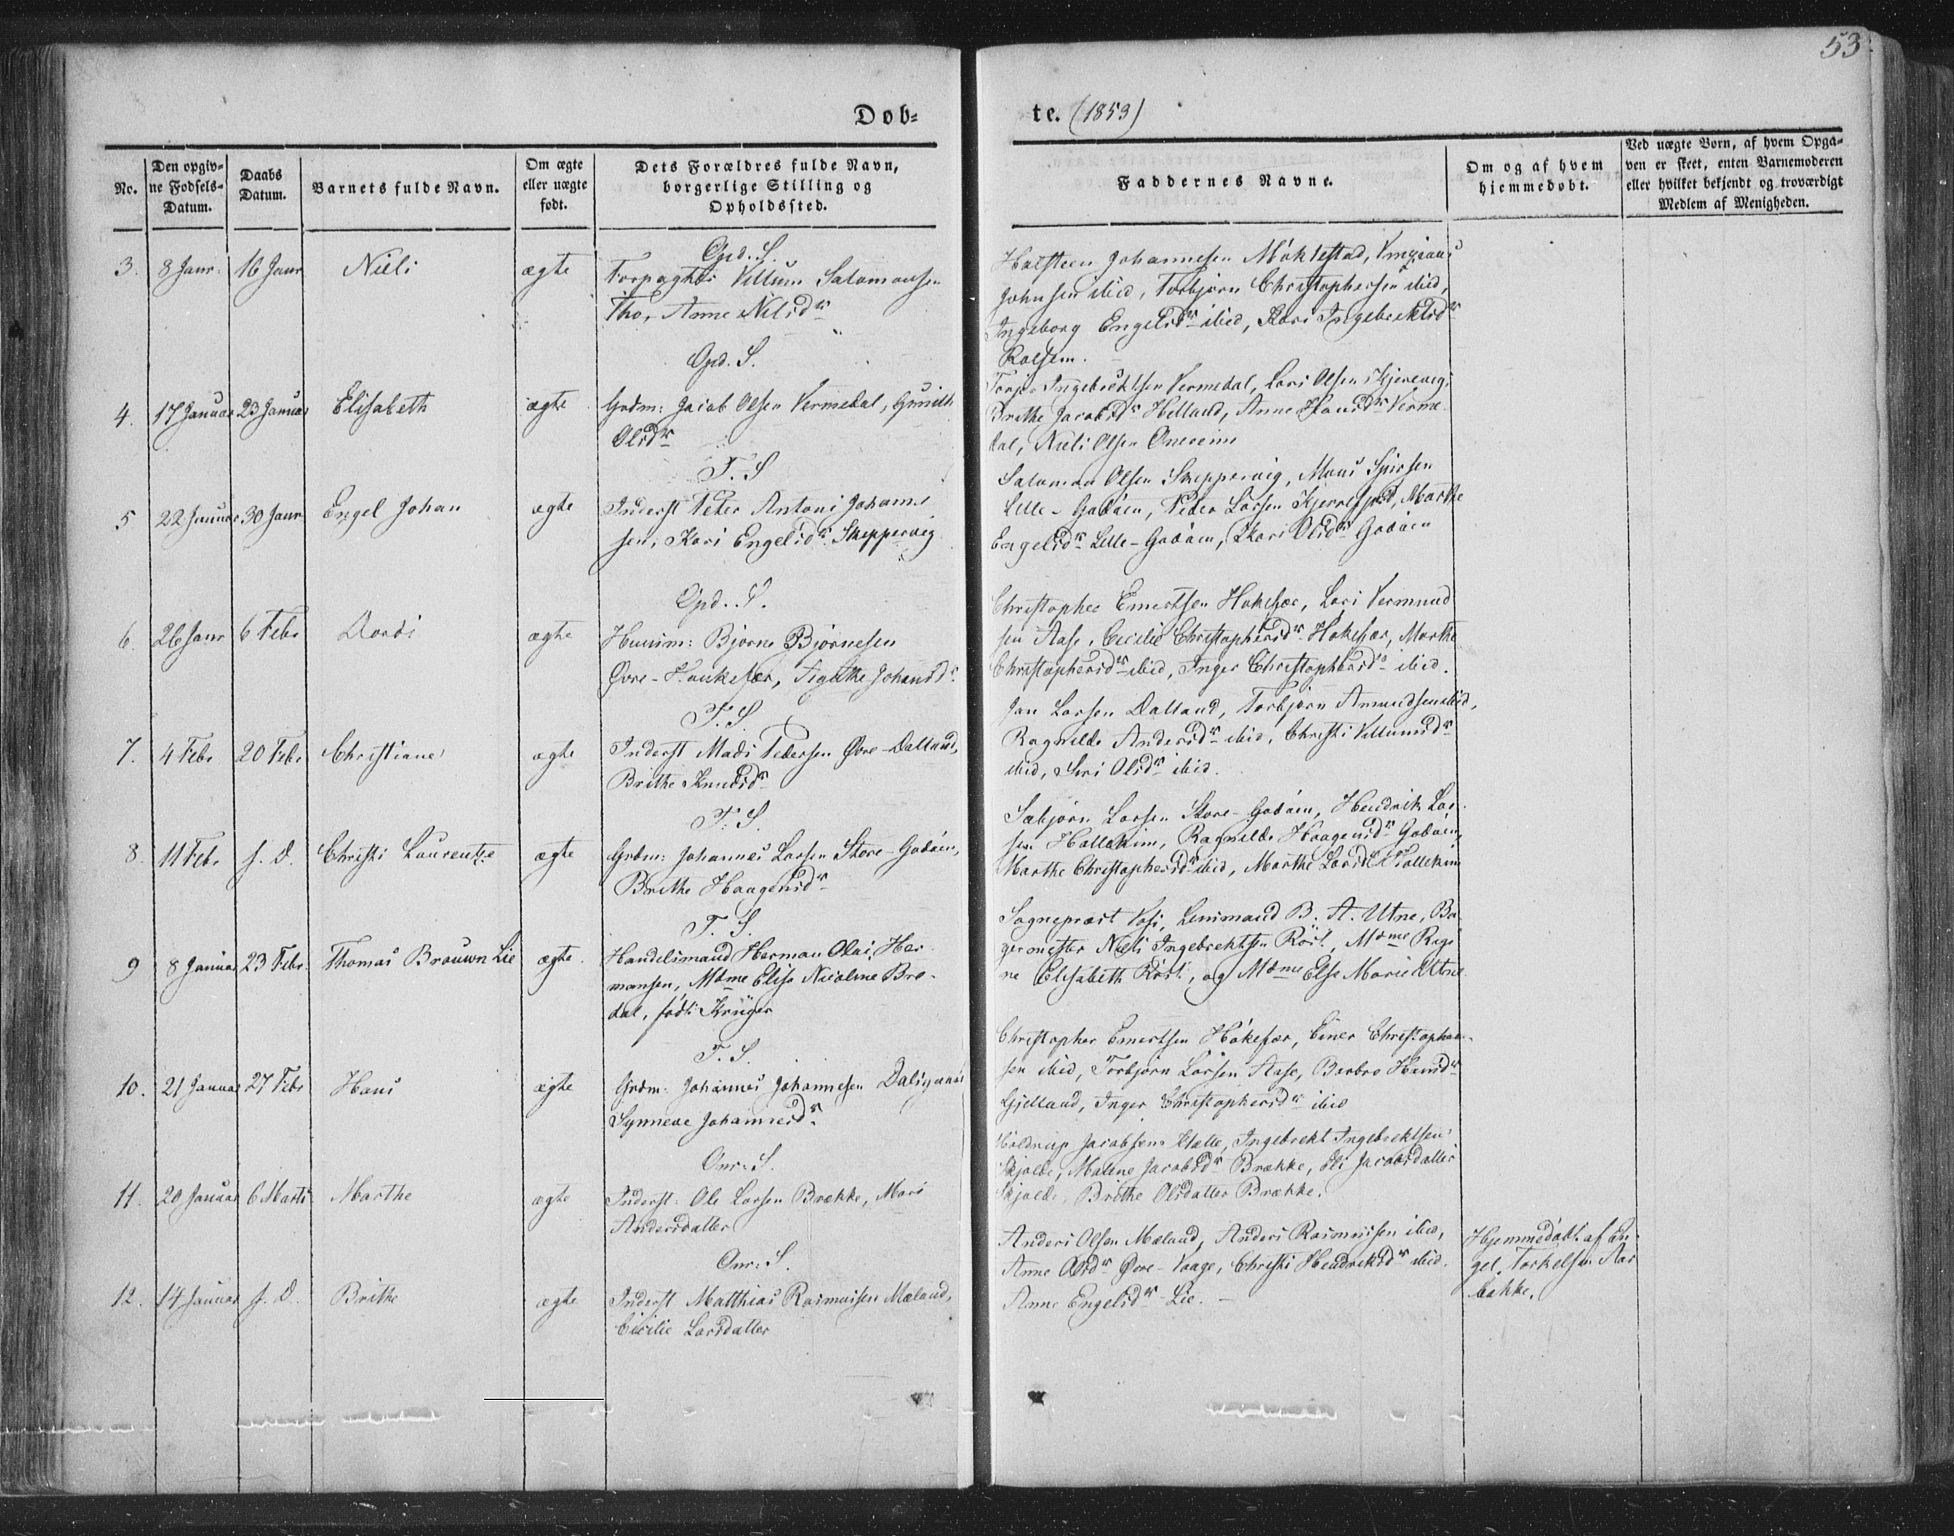 53
Døb-
te. (1853)
No.
Den opgiv-
ne Fødsels-
Datum.
Daabs
Datum.
Barnets fulde Navn.
Om ægte
eller uægte
født.
Dets Forældres fulde Navn,
borgerlige Stilling og
Opholdssted.
Faddernes Navne.
Om og af hvem
hjemmedøbt.
Ved uægte Børn, af hvem Opga-
ven er skeet, enten Barnemoderen
eller hvilket bekjendt og troværdigt
Medlem af Menigheden.
3. 8 Janr. 16 Janr Niels ægte
Opd. S.
Forpagter Villum Salomonsen
Tho, Anne Nilsdr
Holsteen Johannesen Møklestad,
Johnsen ibid, Torbjørn Christophersen ibid,
Ingeborg Engelsdr ibid, Kari Ingebrektsdr
Rolsem.
4. 17 Januar 23 Januar Elisabeth ægte
Opd. S.
Grdm: Jacob Olsen Vermedal, Gunild
Olsdr
Ingebrektsen Vermedal, Lars Olsen Skjerevig,
Brithe Jacobsdr Helland, Anne Hansdr Verme-
dal, Niels Olsen
5 22 Januar 30 Janr Engel Johan ægte
T. S
Inderst Peter Antoni Johanne-
sen, Kari Engelsdr Skeppervig
Salomon Olsen Skeppervig, Mons
Lille-Godøen, Peder Larsen Marthe
Engelsdr Lille-Godøen, Kari Olsdr Godøen
6. 26 Janr 6 Febr Dordi ægte
Opd. S.
Huusm: Bjørne Bjørnesen
Øvre-Haukefær, Johansdr
Christopher Emertsen Hokefær, Lars Vermund-
sen Aase, Cecilie Christophersdr Hokefær, Marthe
Christophersdr ibid, Inger Christophersdr ibid.
7. 4 Febr 20 Febr Christiane ægte
T. S
Inderst Mads Pedersen Øvre-Dalland,
Brithe Knudsdr
Jan Larsen Dalland, Torbjørn Amundsen ibid,
Ragnilde Andersdr ibid, Christi Villumsdr
ibid, Siri Olsdr ibid.
8. 11 Febr s. D. Christi Laurentze ægte
T. S.
Grdm: Johannes Larsen Store-Godøen,
Brithe Haagensdr
Sæbjørn Larsen Store-Godøen, Hendrik Lar-
sen Hallekim, Ragnilde Haagensdr Godøen,
Marthe Christophersdr ibid, Marthe Larsdr Hallekim
9 8 Januar 23 Febr. Thomas Brouwn Lie ægte
T. S.
Handelsmand Herman Olai Her-
mansen, Mdme Elise Nicoline Bre-
dal, født Krüger
Sognepræst Voss, Lensmand B. A. Utne, Bor-
germester Niels Ingebrektsen Røst, Mdme Regi-
ne Elisabeth Røst, og Mdme Else Marie Utne
10. 21 Januar 27 Febr Hans ægte
T. S.
Grdm: Johannes Johannesen
Synneve Johannesdr
Christopher Emertsen Hokefær, Einer Christopher-
sen ibid, Torbjørn Larsen Aase, Barbro Hansdr
Gjelland, Inger Christophersdr ibid
11. 20 Januar 6 Marts Marthe ægte
Onr: S.
Inderst: Ole Larsen Brække, Mari
Andersdatter
Jacobsen Ingebrekt Ingebrektsen
Skjolde, Malene Jacobsdr Brække, Jacobsdatter
Skjolde, Brithe Olsdatter Brække.
12. 14 Januar s. D. Brithe ægte
Onr: S.
Inderst Matthias Rasmussen Mæland,
Cicilie Larsdatter
Anders Olsen Mæland, Anders Rasmussen ibid,
Anne Øvre-Vaage, Christi Hendriksdr ibid.
Anne Engelsdr Lie.
Hjemmedøbt af En-
gel Torkelsen Aar-
bakke.